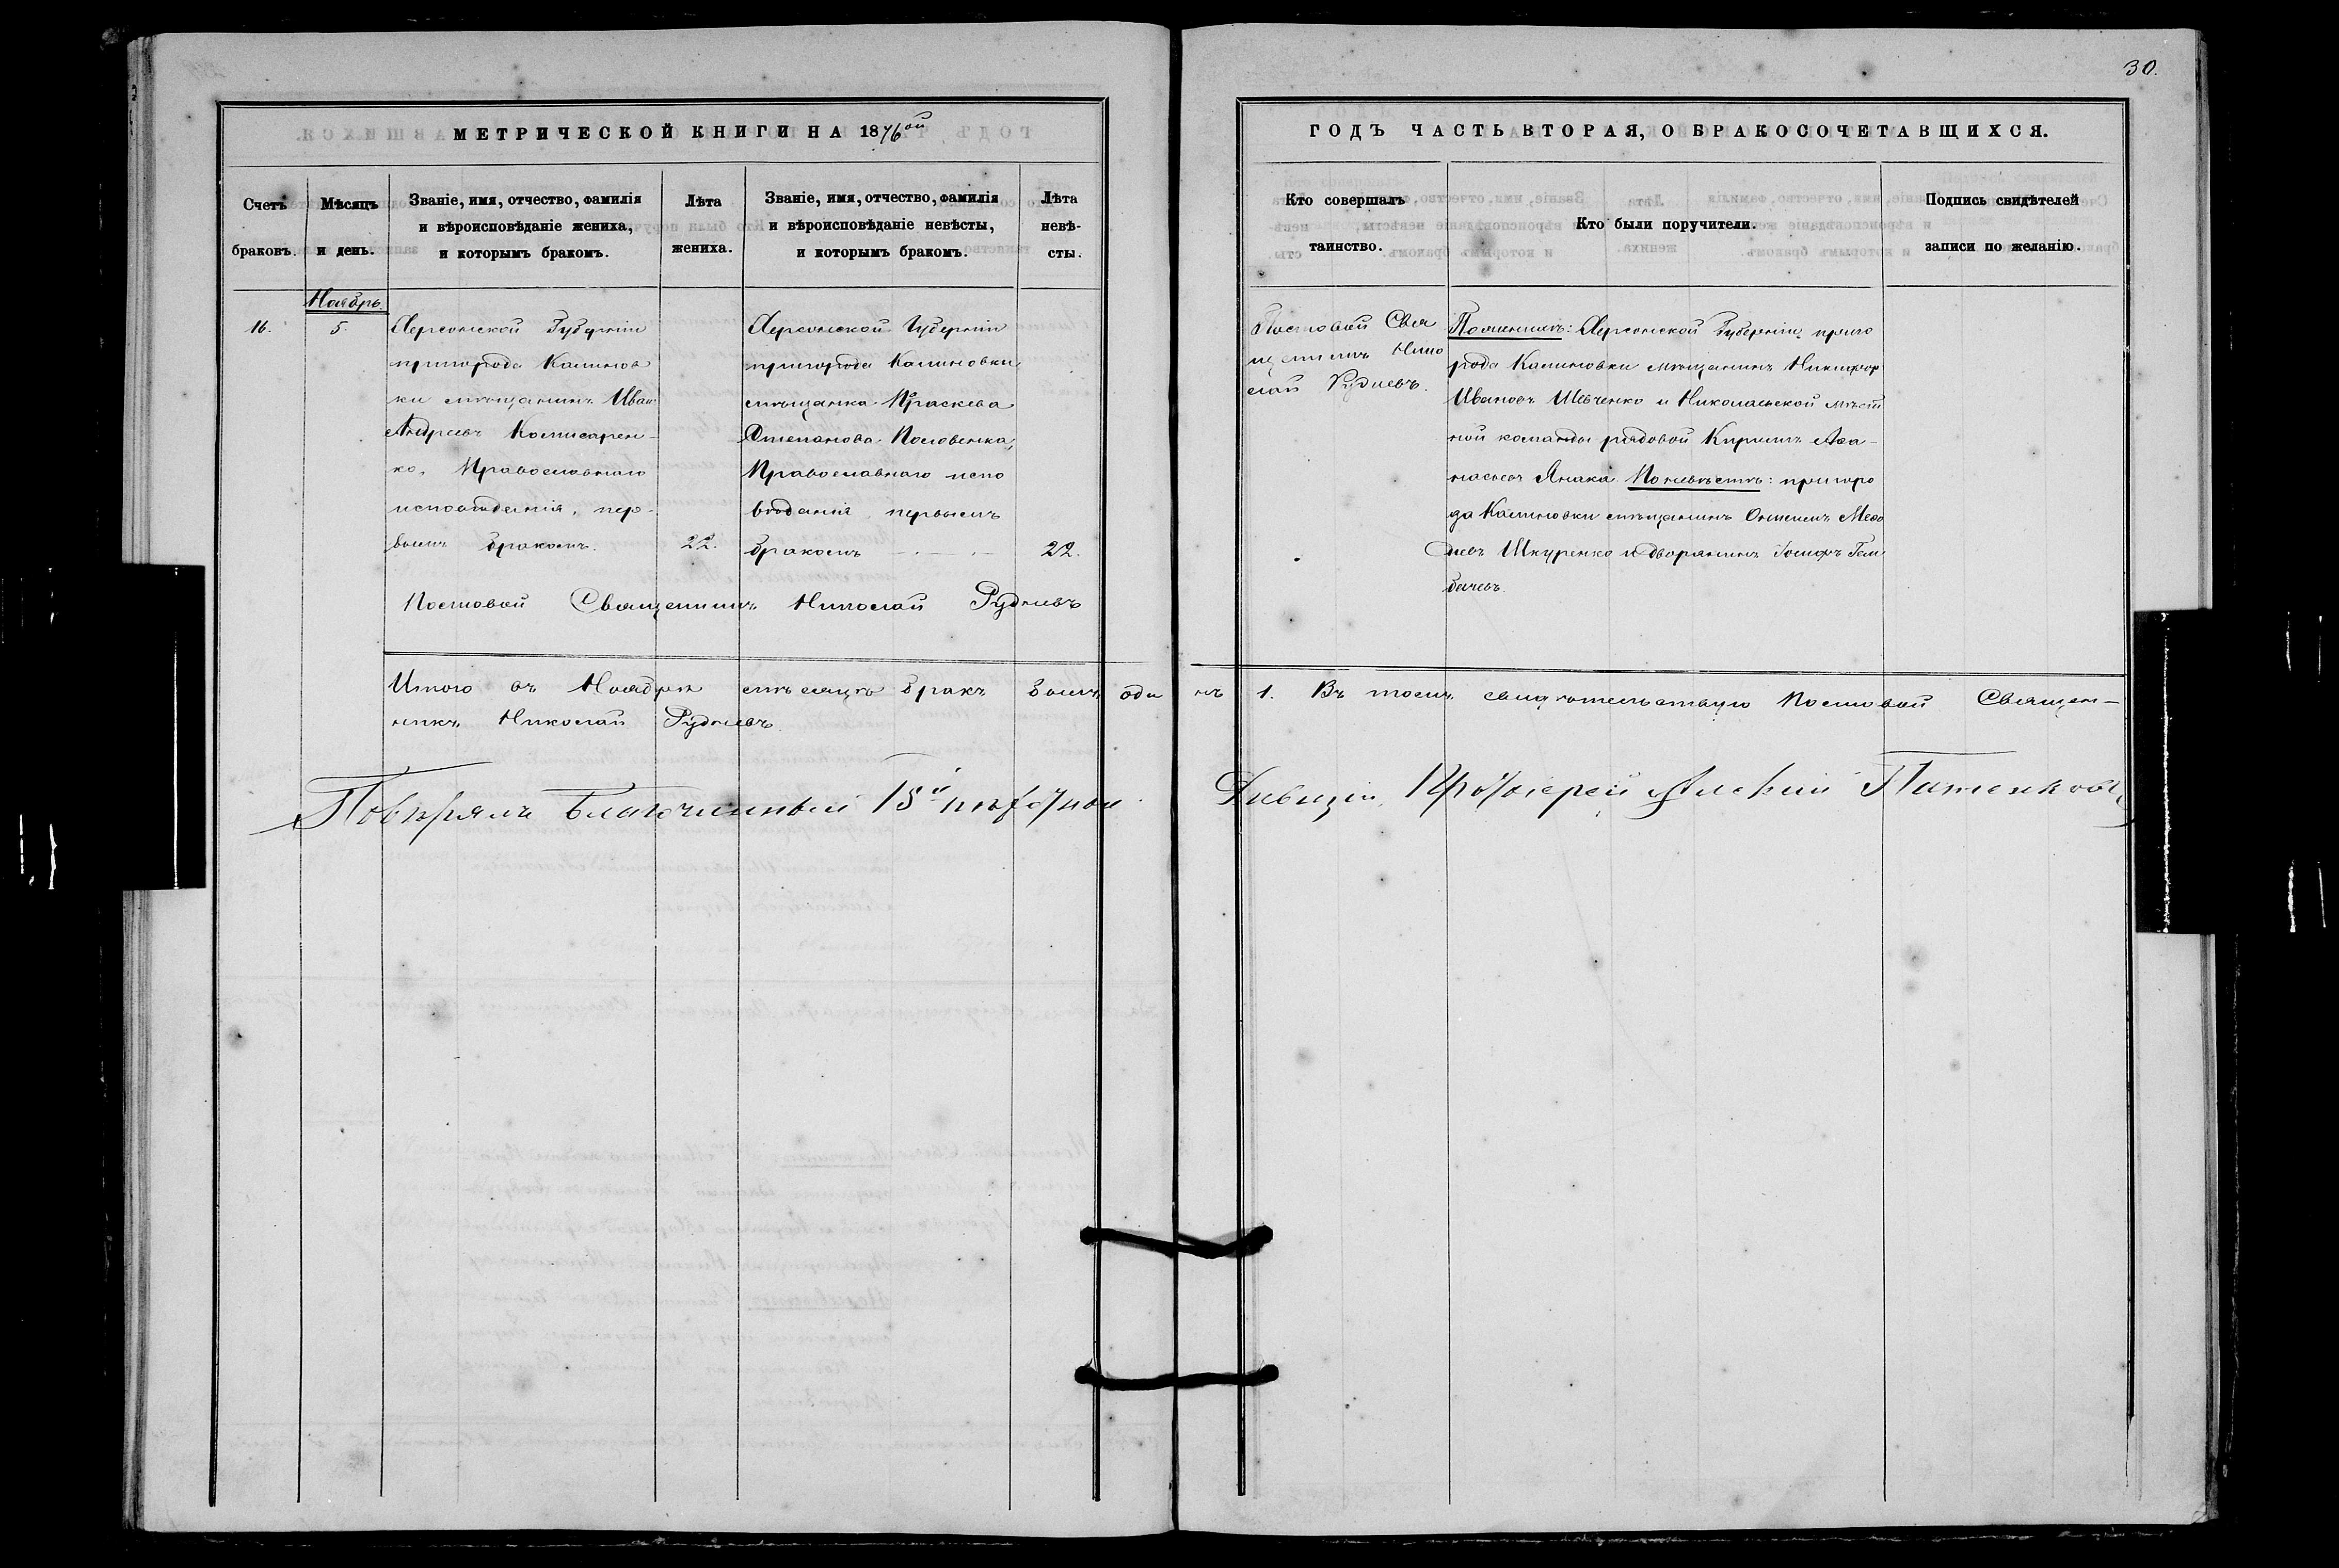 30.
МЕТРИЧЕСКОЙ КНИГИ НА 1876ой
ГОДЪ ЧАСТЬ ВТОРАЯ, О БРАКОСОЧЕТАВЩИХСЯ.
Счетъ браковъ.
Мѣсяцъ и день.
Званіе, имя, отчество, фамилія
и вѣроисповѣданіе жениха,
и которымъ бракомъ.
Лѣта
жениха.
Званіе, имя, отчество, фамилія
и вѣроисповѣданіе невѣсты,
и которымъ бракомъ.
Лѣта
невѣ-
сты.
Кто совершалъ
таинство.
Кто были поручители.
Подпись свидѣтелей
записи по желанію.
Ноябрь
16.
5.
Херсонской Губерніи
пригорода Калинов
ки мѣщанинъ Иван
Андреевъ Комисарен-
ко, Православнаго
исповѣданія, пер-
вымъ бракомъ.
22.
Херсонской Губерніи
пригорода Калиновки
мѣщанка Праскева
Степанова Половенка,
Православнаго испо
вѣданія, первымъ
бракомъ
22.
Постовой Свя
щенникъ Нико
лай Рудневъ.
По женихѣ: Херсонской Губерніи, приго
рода Калиновки мѣщанинъ Никифор
Ивановъ Шевченко и Николаевской мѣст
ной команды рядовой Кирилъ Аѳа-
насьевъ Янака. По невѣстѣ: пригоро
да Калиновки мѣщанинъ Меѳо
діевъ Шкуренко и дворянинъ Іосифъ Гем
бачевъ.
Постовой Священникъ Николай Рудневъ
Итого въ Ноябрѣ мѣсяцѣ бракъ былъ оди
нъ 1. Въ томъ свидѣтельствую Постовой Священ-
никъ Николай Рудневъ.
Повѣрялъ Благочинный 15й пѣхотной
Дивизіи, Протоіерей Алексій